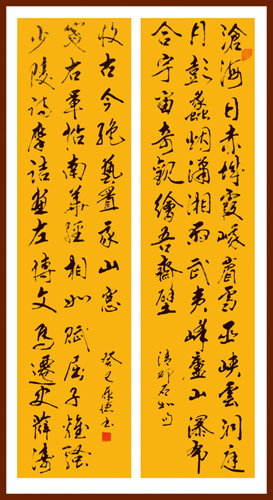 滄海日赤城霞峨眉雪巫峽雲洞庭
月彭蠡烟瀟湘雨武夷峰廬山瀑布
合宇宙奇觀繪吾齋壁
清鄧石如句
少陵詩摩詰畫左傳文馬遷史薛濤
箋右軍帖南華經相如賦屈子離騷
收古今絕藝置我山窗
癸巳